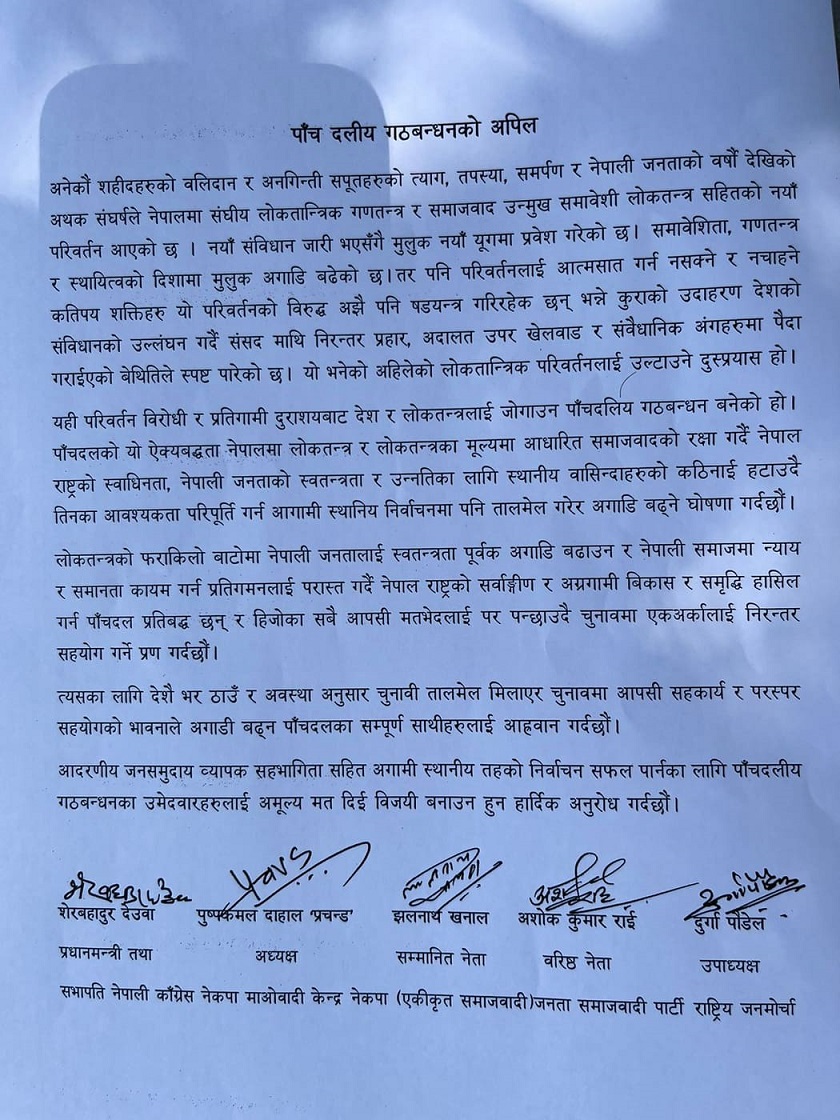 पाँच दलीय गठबन्धनको अपिल
अनेकौं शहीदहरुको वलिदान र अनगिन्ती सपूतहरुको त्याग, तपस्या, समर्पण र नेपाली जनताको वर्षौं देखिको
अथक संघर्षले नेपालमा संघीय लोकतान्त्रिक गणतन्त्र र समाजवाद उन्मुख समावेशी लोकतन्त्र सहितको नयाँ
परिवर्तन आएको छ । नयाँ संविधान जारी भएसँगै मुलुक नयाँ यूगमा प्रवेश गरेको छ। समावेशिता, गणतन्त्र
र स्थायित्वको दिशामा मुलुक अगाडि बढेको छ। तर पनि परिवर्तनलाई आत्मसात गर्न नसक्ने र नचाहने
कतिपय शक्तिहरु यो परिवर्तनको विरुद्ध अझै पनि षडयन्त्र गरिरहेक छन् भन्ने कुराको उदाहरण देशको
संविधानको उल्लंघन गर्दै संसद माथि निरन्तर प्रहार, अदालत उपर खेलवाड र संवैधानिक अंगहरुमा पैदा
गराईएको बेथितिले स्पष्ट पारेको छ। यो भनेको अहिलेको लोकतान्त्रिक परिवर्तनलाई उल्टाउने दुस्प्रयास हो।
यही परिवर्तन विरोधी र प्रतिगामी दुराशयबाट देश र लोकतन्त्रलाई जोगाउन पाँचदलिय गठबन्धन बनेको हो।
पाँचदलको यो ऐक्यबद्धता नेपालमा लोकतन्त्र र लोकतन्त्रका मूल्यमा आधारित समाजवादको रक्षा गर्दै नेपाल
राष्ट्रको स्वाधिनता, नेपाली जनताको स्वतन्त्रता र उन्नतिका लागि स्थानीय वासिन्दाहरुको कठिनाई हटाउदै
तिनका आवश्यकता परिपूर्ति गर्न आगामी स्थानिय निर्वाचनमा पनि तालमेल गरेर अगाडि बढ्ने घोषणा गर्दछौं।
लोकतन्त्रको फराकिलो बाटोमा नेपाली जनतालाई स्वतन्त्रता पूर्वक अगाडि बढाउन र नेपाली समाजमा न्याय
र समानता कायम गर्न प्रतिगमनलाई परास्त गर्दै नेपाल राष्ट्रको सर्वाङ्गीण र अग्रगामी बिकास र समृद्धि हासिल
गर्न पाँचदल प्रतिबद्ध छन् र हिजोका सबै आपसी मतभेदलाई पर पन्छाउदै चुनावमा एकअर्कालाई निरन्तर
सहयोग गर्ने प्रण गर्दछौं।
त्यसका लागि देशै भर ठाउँ र अवस्था अनुसार चुनावी तालमेल मिलाएर चुनावमा आपसी सहकार्य र परस्पर
सहयोगको भावनाले अगाडी बढ्न पाँचदलका सम्पूर्ण साथीहरुलाई आह्रवान गर्दछौं।
आदरणीय जनसमुदाय व्यापक सहभागिता सहित अगामी स्थानीय तहको निर्वाचन सफल पार्नका लागि पाँचदलीय
गठबन्धनका उमेदवारहरुलाई अमूल्य मत दिई विजयी बनाउन हुन हार्दिक अनुरोध गर्दछौं।
शेरबहादुर देउवा पुष्पकमल दाहाल 'प्रचन्ड' झलनाथ खनाल अशोक कुमार राई दुर्गा पौडेल
प्रधानमन्त्री तथा अध्यक्ष सम्मानित नेता वरिष्ठ नेता उपाध्यक्ष
सभापति नेपाली काँग्रेस नेकपा माओवादी केन्द्र नेकपा (एकीकृत समाजवादी)जनता समाजवादी पार्टी राष्ट्रिय जनमोर्चा